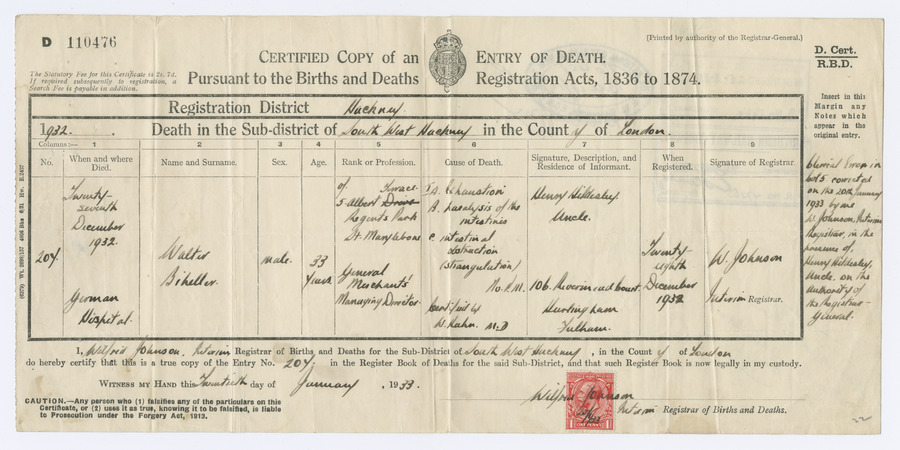 D 110476
(Printed by authority of the Registrar-General.)
CERTIFIED COPY of an ENTRY OF DEATH.
Pursuant to the Births and Deaths Registration Acts, 1836 to 1874.
D. Cert.
R.B.D.
The Statutory Fee for this Certificate is 2s. 7d.
If required subsequently to registration, a
Search Fee is payable in addition.
Registration District Hackney
1932. Death in the Sub-district of South West Hackney in the County of London.
Columns:— 1 2 3 4 5 6 7 8 9
No. When and where Died. Name and Surname. Sex. Age. Rank or Profession. Cause of Death. Signature, Description, and Residence of Informant. When Registered. Signature of Registrar.
204
Twenty-
seventh
December
1932.
German
Hospital.
Walter
Biheller
male.
33
years
of Terrace
5 Albert Drove
Regents Park
St. Marylebone
General
Merchants'
Managing Director
I a. Exhaustion
B. paralysis of the
intestines
c. intestinal
obstruction
(strangulation)
No. P.M.
Certified by
W. Kahn. M.D
Henry
Uncle.
106. Court.
Hurlingham
Fulham.
Twenty-
eighth
December
1932
W. Johnson
Interim Registrar.
Insert in this
Margin any
Notes which
appear in the
original entry.
Clerical Error in
Col 5 corrected
on the 20th January
1933 by me
W. Johnson, Interim
Registrar, in the
presence of
Henry
Uncle, on the
authority of
the Registrar-
General.
I, Wilfrid Johnson, Interim Registrar of Births and Deaths for the Sub-District of South West Hackney, in the County of London
do hereby certify that this is a true copy of the Entry No. 204, in the Register Book of Deaths for the said Sub-District, and that such Register Book is now legally in my custody.
WITNESS MY HAND this Twentieth day of January, 1933.
CAUTION.—Any person who (1) falsifies any of the particulars on this
Certificate, or (2) uses it as true, knowing it to be falsified, is liable
to Prosecution under the Forgery Act, 1913.
Wilfrid Johnson
Interim Registrar of Births and Deaths.
ONE PENNY